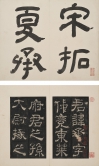 宋拓
夏承
君諱承字
仲兗東萊
府君之孫
大尉掾之